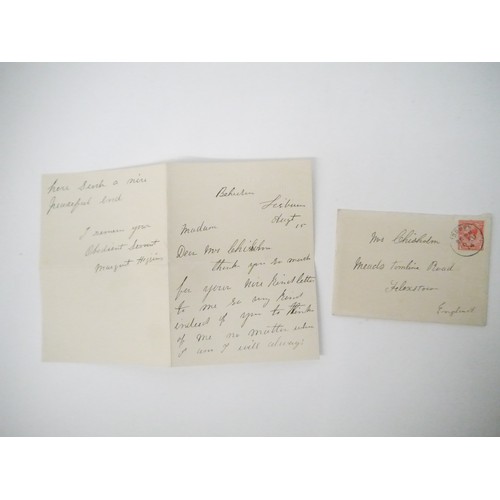 have such a nice
peaceful end
I remain your
Obedient Servt
Margaret
Augt 15
Madam
Dear Mrs Chisholm
thank you so much
for your nice kind letter
to me so very kind
indeed of you to think
of me no matter where
I am I will always
Mrs Chisholm
Road
Felixstowe
England